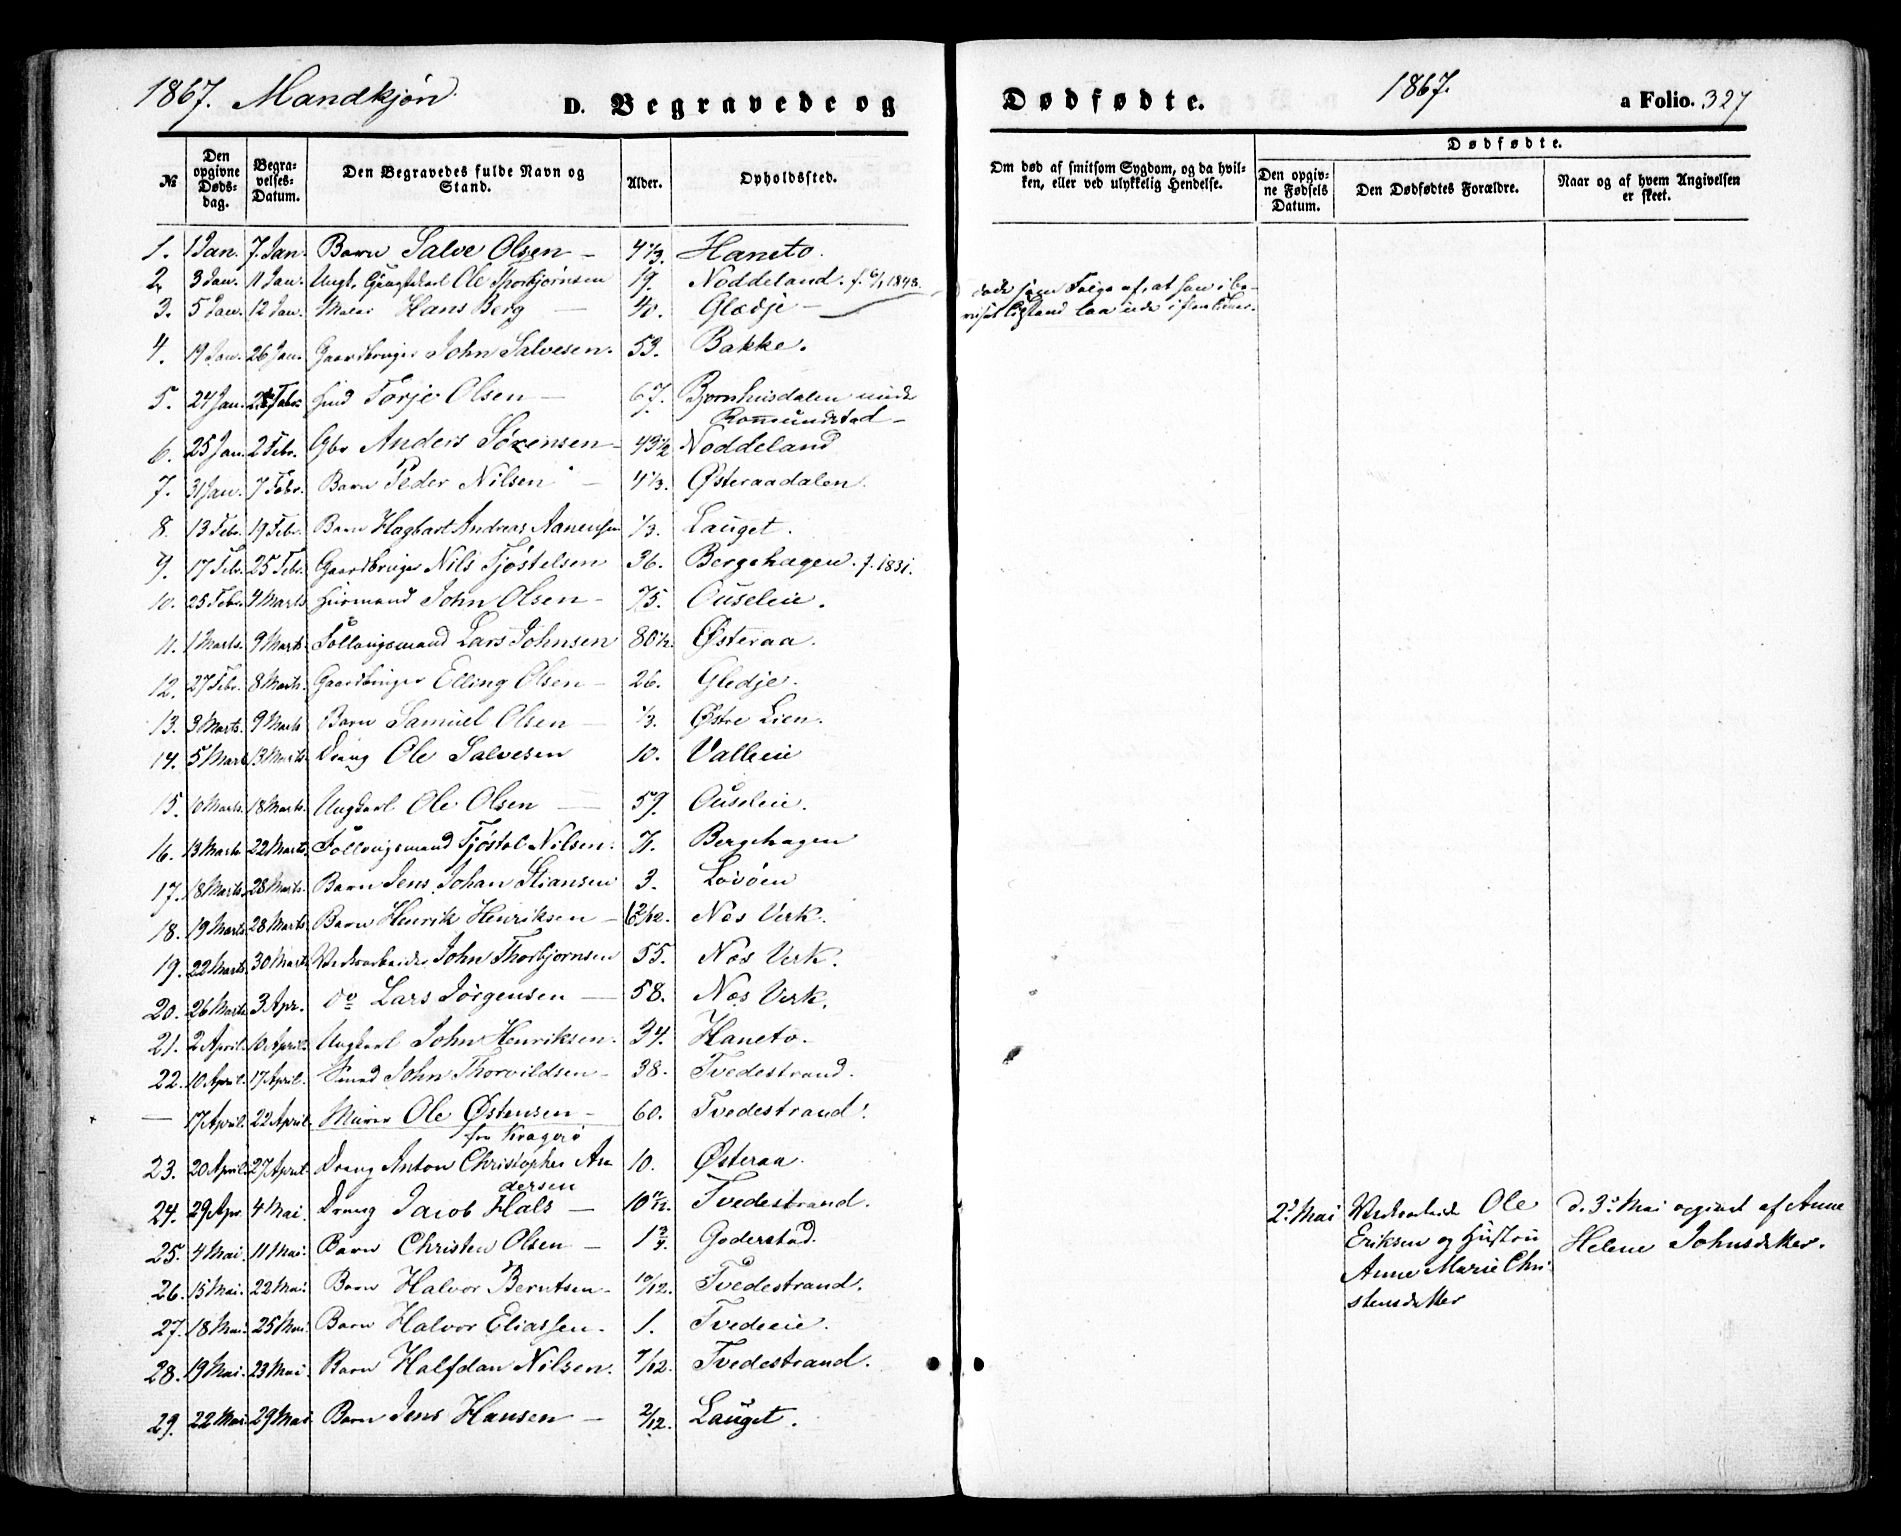 1867. Mandkjøn. D. Begravede og
№ Den opgivne Dødsdag. Begravelses-Datum. Den Begravedes fulde Navn og Stand. Alder. Opholdssted.
1. 1 Jan. 7. Jan. Barn Salve Olsen – 4 1/3. Haneto.
2. 3 Jan. 11 Jan. Ole Thorbjørnsen 19. Noddeland. f. 1848.
3. 5 Jan. 12 Jan. Hans Berg – 40. Glædje –
4. 19 Jan. 26 Jan. Gaardbruger John Salvesen. 53. Bakke.
5. 24 Jan. Febr. Terje Olsen – 67. Bjørnhusdalen under
Rommundstad –
6. 25 Jan. 2 Febr. Gbr Anders Sørensen – 49 1/2 Noddeland
7. 31 Jan. 7 Febr. Barn Peder Nilsen – 4 1/3. Østeraadalen.
8. 13 Febr. 19 Febr. Barn Hagbart Andreas Aanensen 1/3. Lauget.
9. 17 Febr. 25 Febr. Gaardbruger Nils Tjøstelsen 36. Bergehagen. f. 1831.
10. 25 Febr. 4 Marts Huusmand John Olsen – 75. Ouseleie.
11. 1 Marts. 9 Marts. Follougsmand Lars Johnsen 80 1/2. Østeraa.
12. 27 Febr. 8 Marts. Gaardbruger Elling Olsen – 26. Gledje.
13. 3 Marts. 9 Marts Barn Samuel Olsen – 1/3. Østre Lien.
14. 5 Marts 13 Marts. Dreng Ole Salvesen 10. Valleeie
15. 10 Marts. 18 Marts. Ungkarl Ole Olsen – 59. Ouseleie.
16. 13 Marts. 22 Marts. Follougsmand Tjøstol Nilsen. 71. Bergehagen
17. 18 Marts. 28 Marts. Barn Jens Johan Stiansen 3. Lovøen
18. 19 Marts. 28 Marts. Barn Henrik Henriksen – Nes Verk.
19. 22 Marts. 30 Marts Verksarbeider John Thorbjørnsen 55. Nes Verk.
20. 26 Marts. 3 Apr. Do Lars Jørgensen – 58. Nes Verk.
21. 2 April. 10 April. Ungkarl John Henriksen. 34. Haneto.
22. 10 April. 17 April. John Thorvildsen – 38. Tvedestrand.
– 17 April. 22 April. Murer Ole Østensen – 60. Tvedestrand.
fra Kragerø
23. 20 April. 27 April Dreng Anton Christopher An 10. Østeraa.
dersen
24. 29 Apr. 4 Mai. Dreng Jacob Hals – 10 Tvedestrand.
25. 4 Mai. 11 Mai. Barn Christen Olsen – 1 3/4. Goderstad.
26. 15 Mai. 22 Mai. Barn Halvor Berntsen – 10/12. Tvedestrand.
27. 18 Mai. 25 Mai. Barn Halvor Eliassen. 1. Tvedeeie.
28. 19 Mai. 23 Mai. Barn Halfdan Nilsen. 7/12. Tvedestrand.
29. 22 Mai. 29 Mai Barn Jens Hansen – 2/12. Lauget.
Dødfødte. 1867. a Folio. 327
Om død af smitsom Sygdom, og da hvilken, eller ved ulykkelig Hendelse. Dødfødte.
Den opgivne Fødsels Datum. Den Dødfødtes Forældre. Naar og af hvem Angivelsen er skeet.
døde som Følge af, at han i be-
ruset Tilstand laa ude i
2. Mai Verksarbeider Ole
Eriksen og Hustru
Anne Marie Chri
stensdatter
d. 3. Mai opgivet af Anne
Helene Johnsdatter.